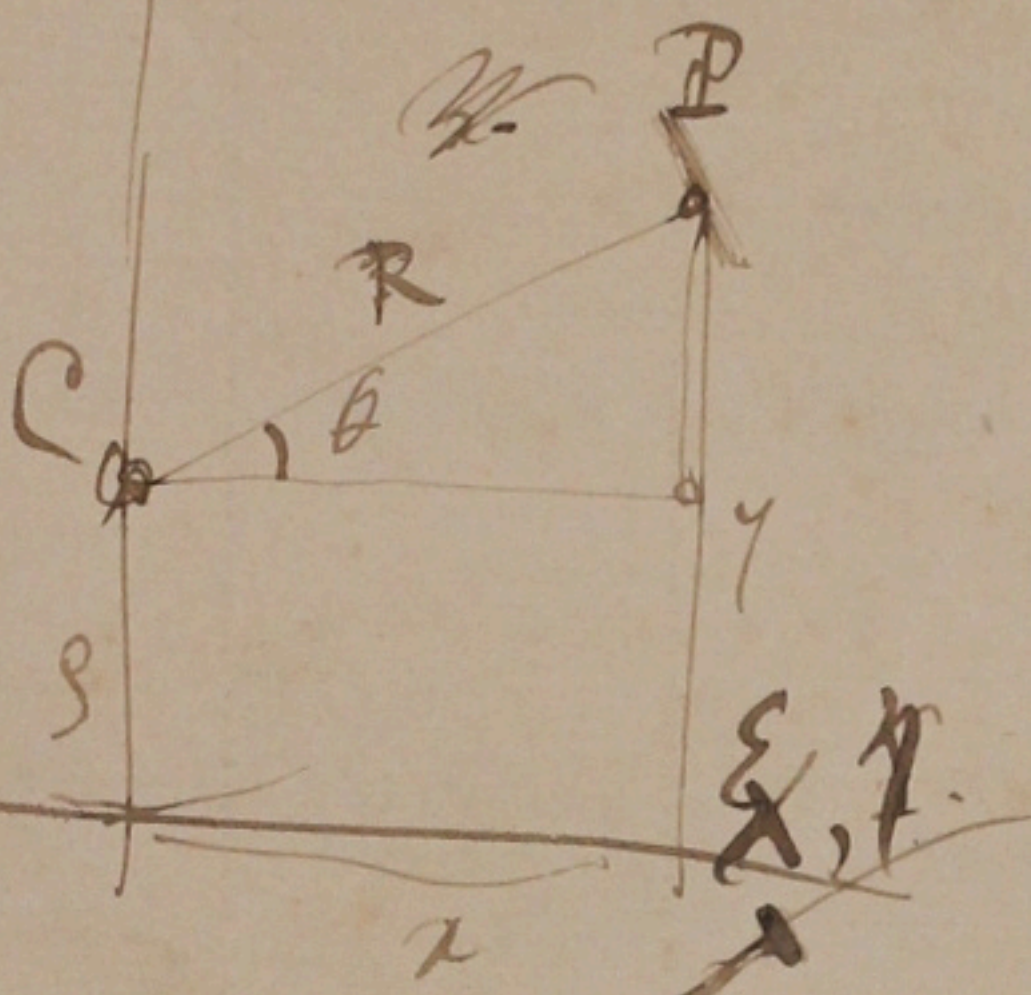 P
R
C
θ
y
ρ
ξ, η.
x